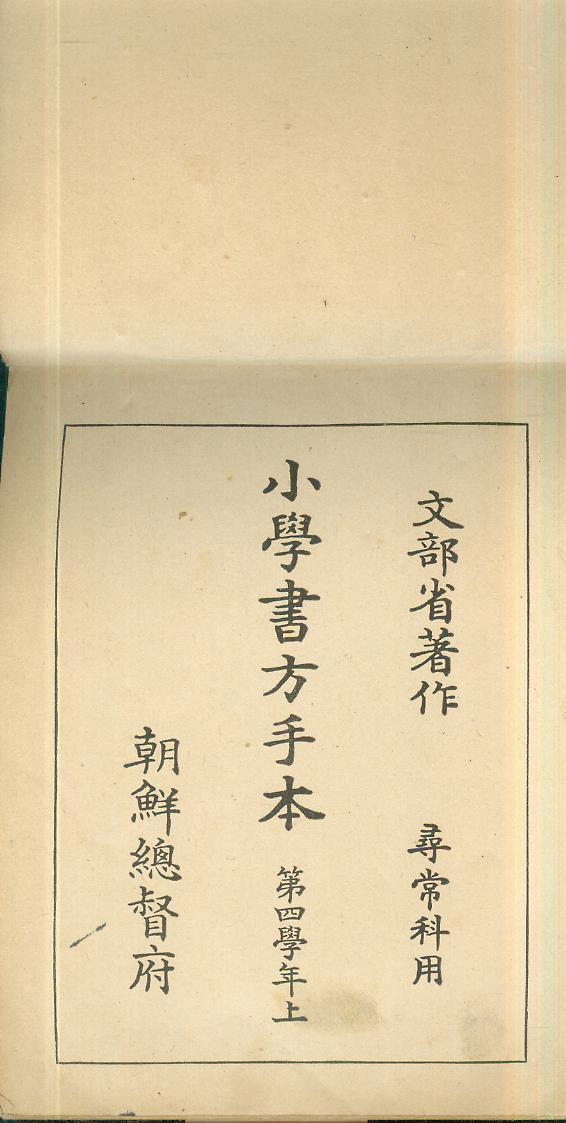 文部省著作 尋常科用
小學書方手本 第四學年上
朝鮮總督府